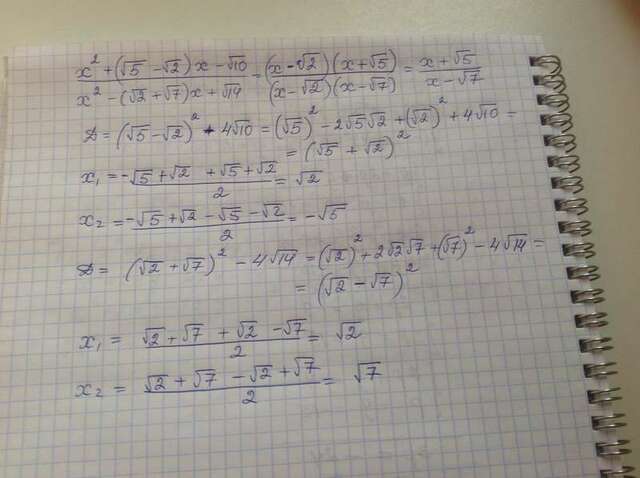 x² + (√5 - √2)x - √10 / x² - (√2 + √7)x + √14 = (x - √2)(x + √5) / (x - √2)(x - √7) = x + √5 / x - √7
D = (√5 - √2)² + 4√10 = (√5)² - 2√5√2 + (√2)² + 4√10 =
= (√5 + √2)²
x₁ = -√5 + √2 + √5 + √2 / 2 = √2
x₂ = -√5 + √2 - √5 - √2 / 2 = -√5
D = (√2 + √7)² - 4√14 = (√2)² + 2√2√7 + (√7)² - 4√14 =
= (√2 - √7)²
x₁ = √2 + √7 + √2 - √7 / 2 = √2
x₂ = √2 + √7 - √2 + √7 / 2 = √7